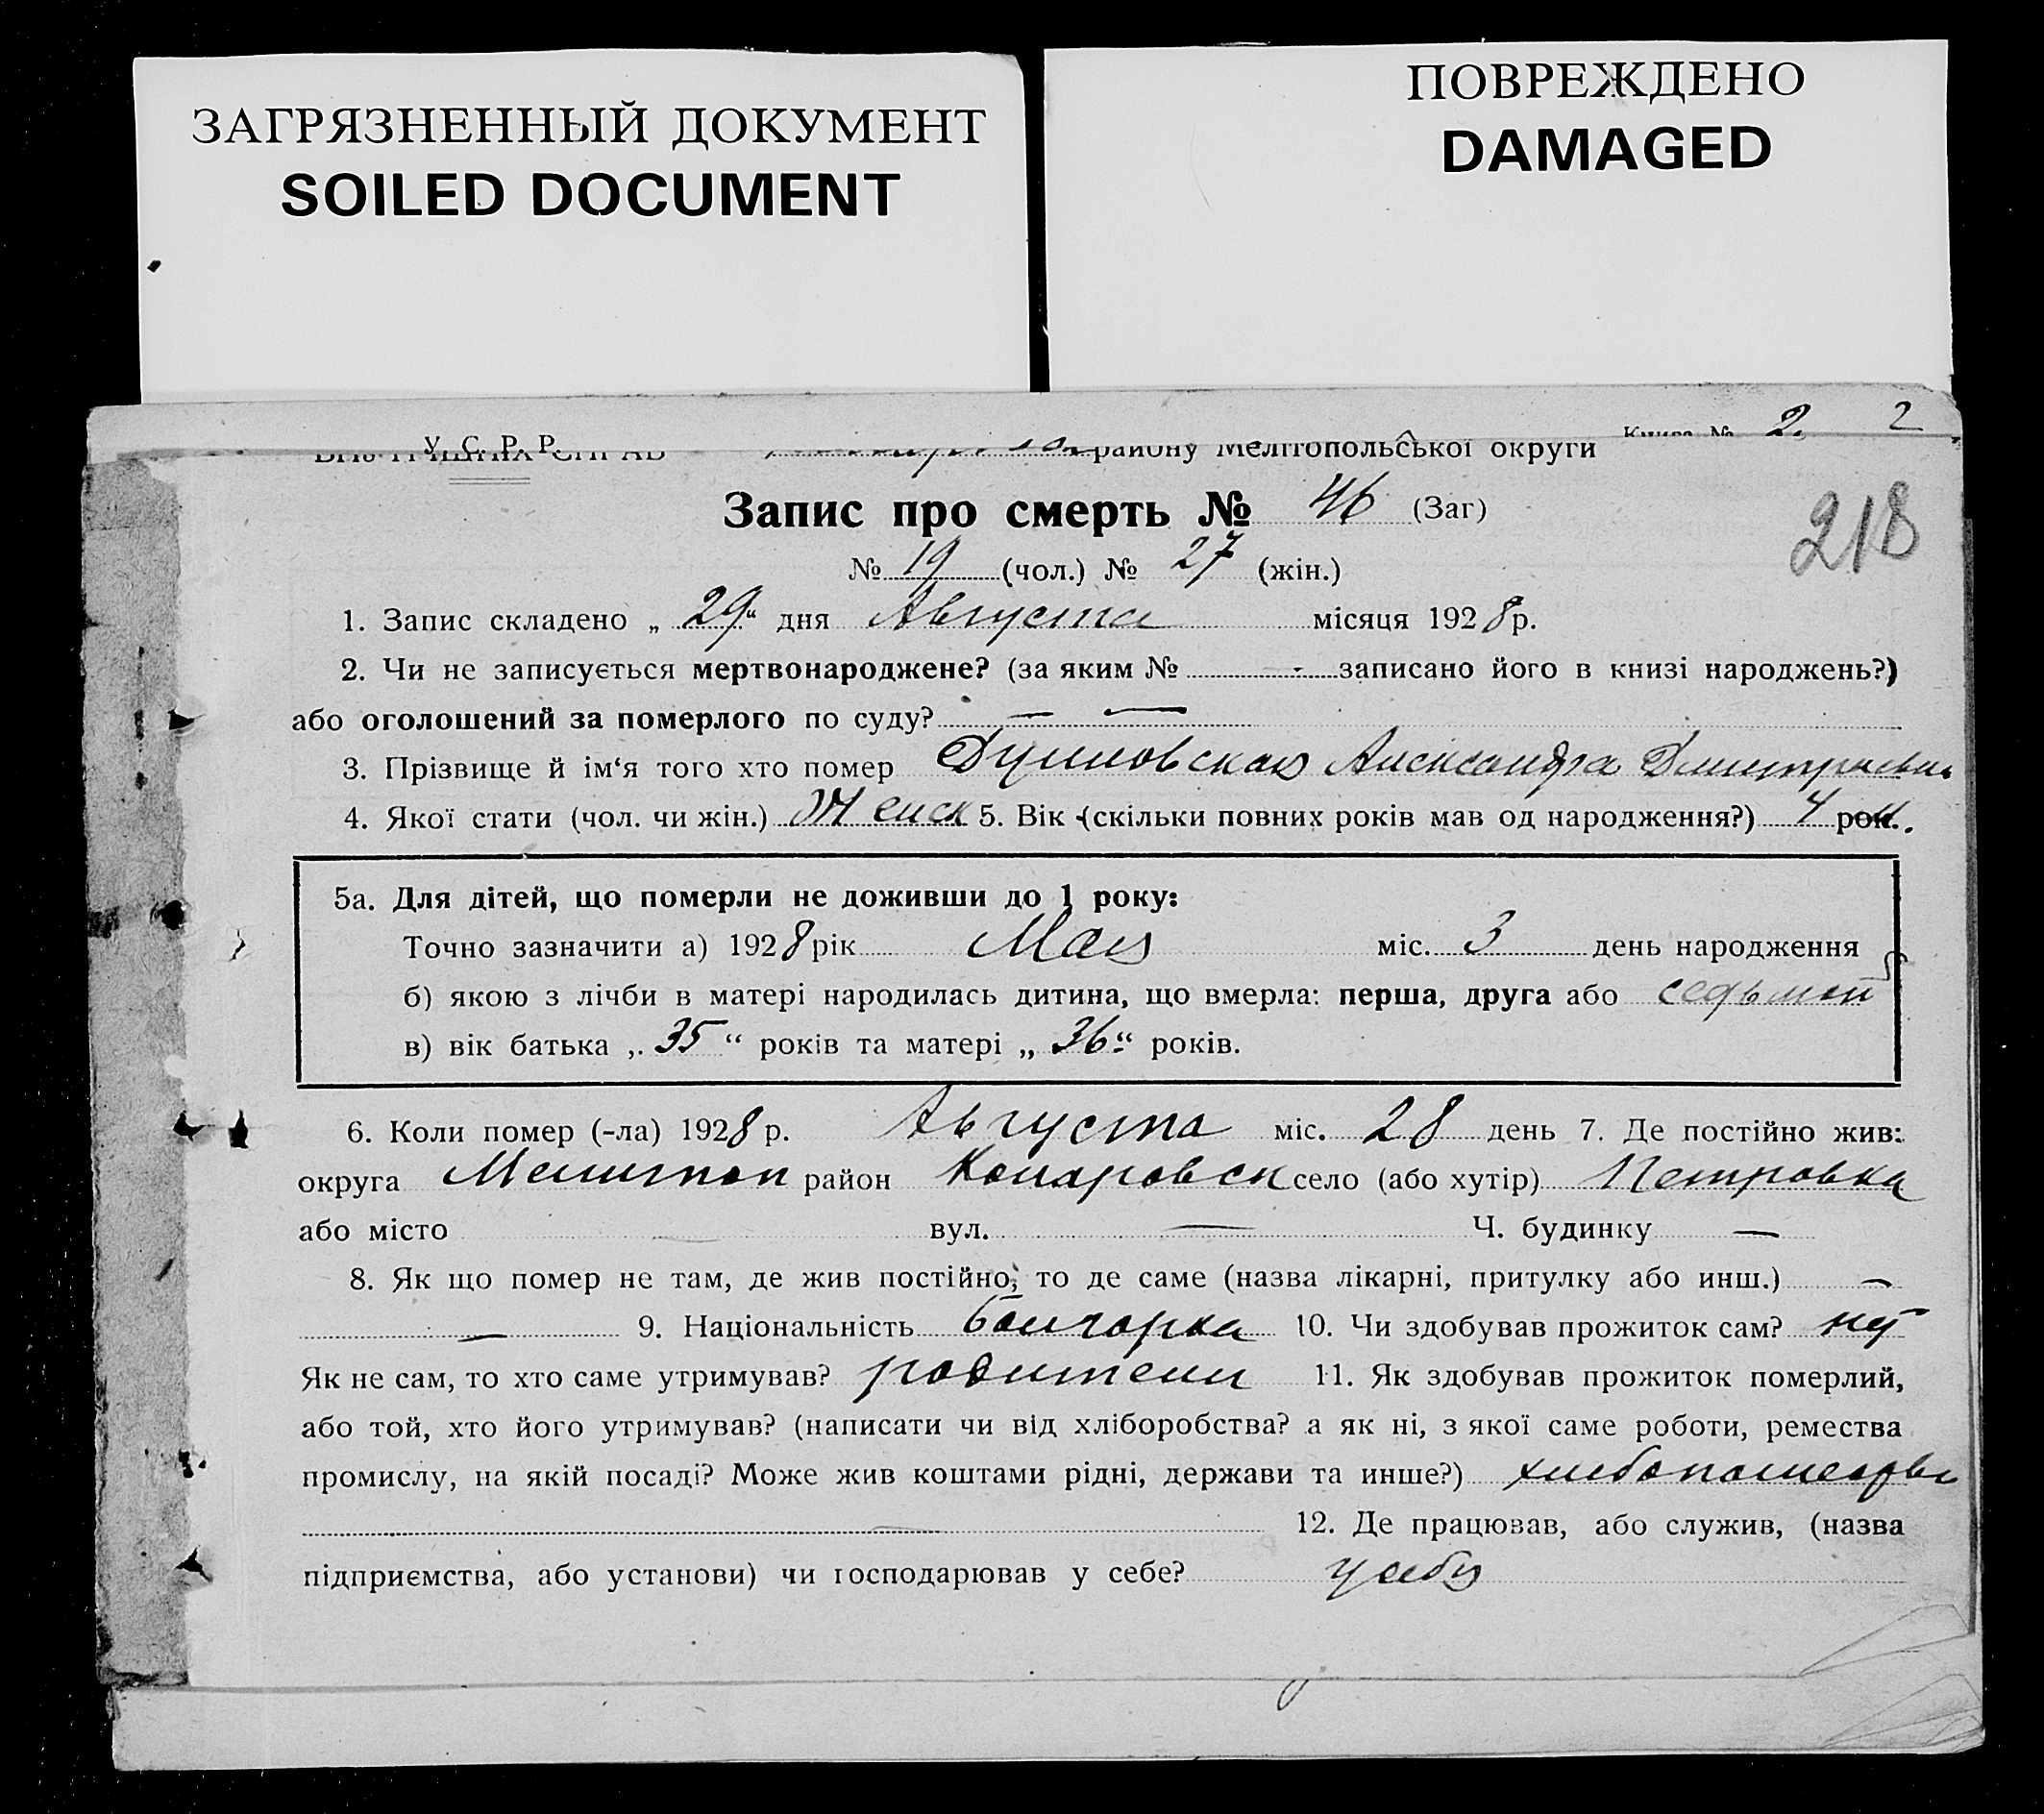 ЗАГРЯЗНЕННЫЙ ДОКУМЕНТ
SOILED DOCUMENT
ПОВРЕЖДЕНО
DAMAGED
Книга № 2. 2
У. С. Р. Р.
району Мелітопольської округи
Запис про смерть № 46 (Заг)
218
№ 19 (чол.) № 27 (жін.)
1. Запис складено „ 29 “ дня Августа місяця 1928 р.
2. Чи не записується мертвонароджене? (за яким № - записано його в книзі народжень?)
або оголошений за померлого по суду? — —
3. Прізвище й ім‘я того хто помер Александра Дмитриевна
4. Якої стати (чол. чи жін.) Женск 5. Вік (скільки повних років мав од народження?) 4
5а. Для дітей, що померли не доживши до 1 року:
Точно зазначити а) 1928 рік Мая міс. 3 день народження
б) якою з лічби в матері народилась дитина, що вмерла: перша, друга або седьмой
в) вік батька „ 35 “ років та матері „ 36 “ років.
6. Коли помер (-ла) 1928 р. Августа міс. 28 день 7. Де постійно жив:
округа Мелитоп район село (або хутір) Петровка
або місто — вул. — Ч. будинку —
8. Як що помер не там, де жив постійно, то де саме (назва лікарні, притулку або инш.) —
— 9. Національність болгарка 10. Чи здобував прожиток сам?
Як не сам, то хто саме утримував? родители 11. Як здобував прожиток померлий,
або той, хто його утримував? (написати чи від хліборобства? а як ні, з якої саме роботи, ремества
промислу, на якій посаді? Може жив коштами рідні, держави та инше?)
12. Де працював, або служив, (назва
підприємства, або установи) чи господарював у себе? у себя